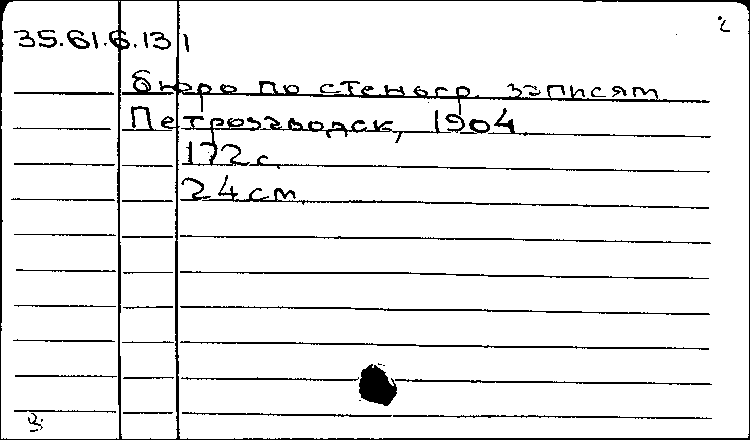 35.61.6.13 1
бюро по стеногр. записям
Петрозаводск, 1904.
172 с.
24 см.